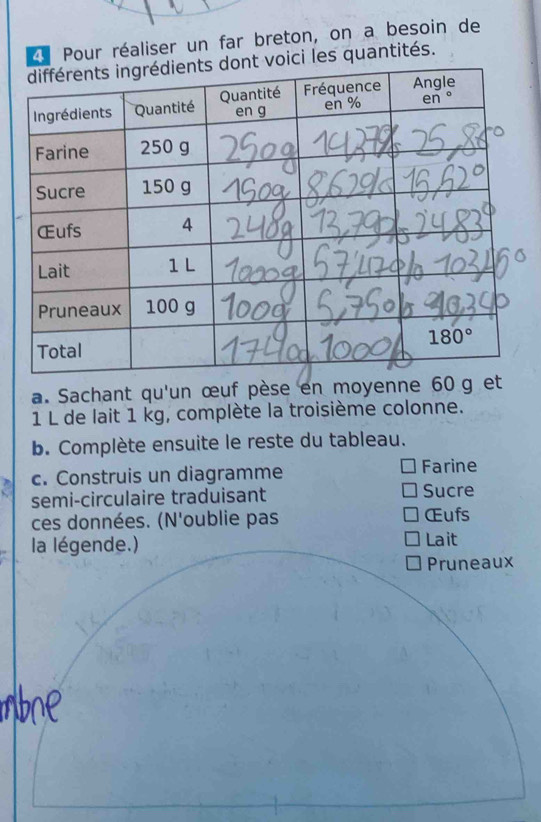 4 Pour réaliser un far breton, on a besoin de
différents ingrédients dont voici les quantités.
Ingrédients Quantité Quantité en g Fréquence en % Angle en °
Farine 250 g 250g 14,37% 25,86°
Sucre 150 g 150g 8,62% 15,52°
Œufs 4 240g 13,79% 24,83°
Lait 1 L 1000g 57,47% 103,45°
Pruneaux 100 g 100g 5,75% 10,34°
Total 1740g 100% 180°
a. Sachant qu'un œuf pèse en moyenne 60 g et
1 L de lait 1 kg, complète la troisième colonne.
b. Complète ensuite le reste du tableau.
c. Construis un diagramme
semi-circulaire traduisant
ces données. (N'oublie pas
la légende.)
□ Farine
□ Sucre
□ Œufs
□ Lait
□ Pruneaux